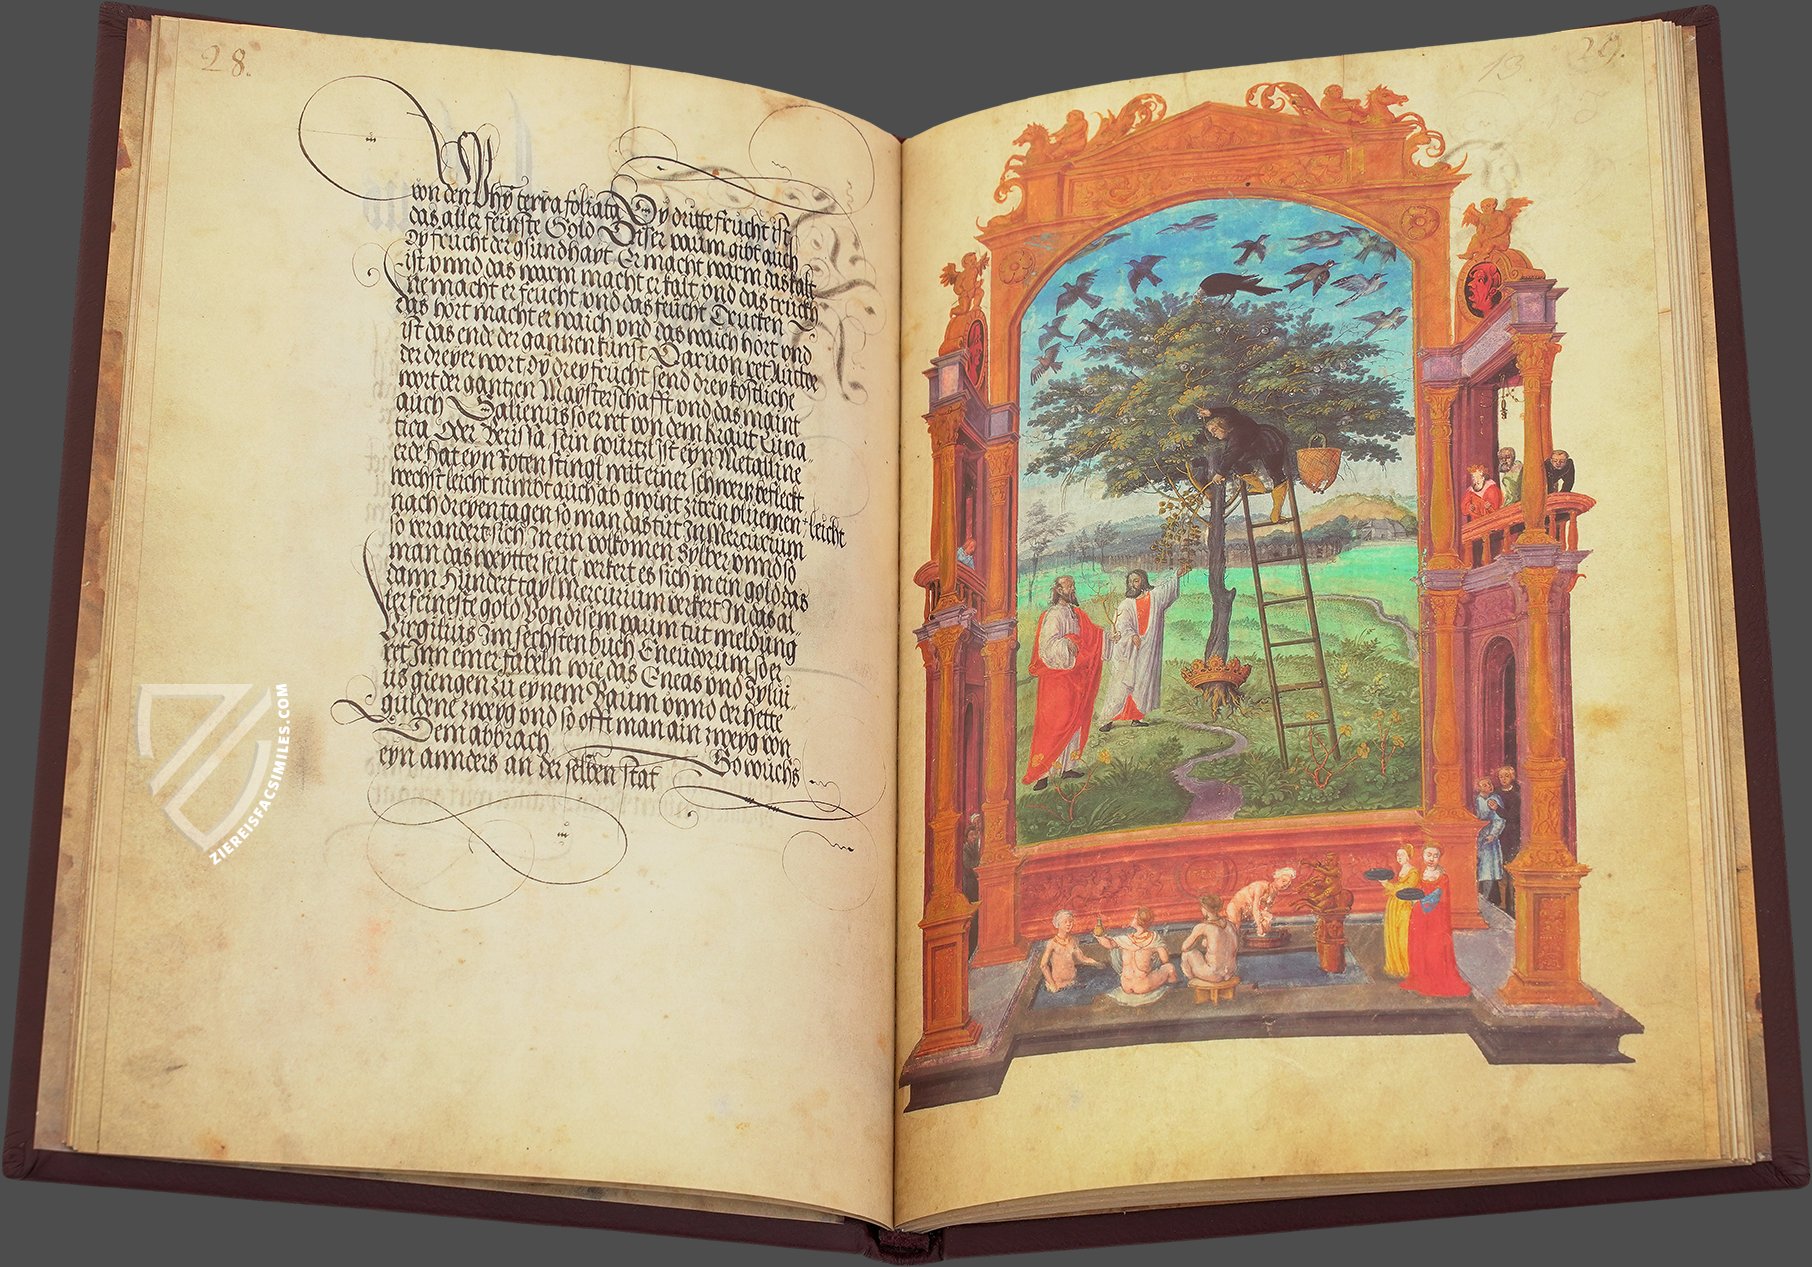 28.
von den Phỹ terra foliata Dy dritte frucht ist
das aller feinste Gold Diser baum gibt auch
dy frucht der gsundhayt Er macht warm das kalt
ist vnnd das warm macht er kalt vnd das trucken
macht er feucht vnd das feucht Trucken
das hort macht er waich vnd das waich hort vnd
ist das ende der gantzen kunst Daruon ret Auctor
der dreyer wort dy drey frucht send drey kostliche
wort der gantzen Maysterschafft vnd das maint
auch Galienus so er ret von dem kraut Luna-
tica Oder Berissa sein wurtzl ist eyn Metalline
erde hat eyn Roten stingl mit einer schwertz befleckt
wechst leicht nimbt auch ab gwint zitrin plüemen + leicht
nach dreyen tagen so man das tüt In Mercurium
so verandert sich In ein volkomen Sylber vnnd so
man das weytter seüt verkert es sich in ein gold das
dann Hundert tayl Mercurium verkert In das al-
ler feineste gold Von disem baum tüt meldung
Virgilius Im sechsten buch Eneudorum so er
ret Inn einer fabeln wie das Eneas vnd Sylui-
us giengen zü eynem Baum vnnd der hette
güldene zweyg vnd so offt man ain zweyg von
Dem abbrach So wüchs
eyn annders an der selben stat
13 29.
ZIEREISFACSIMILES.COM